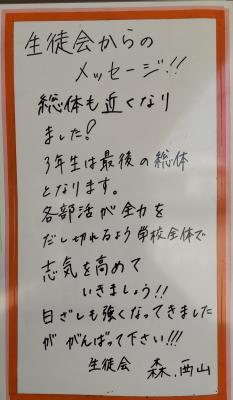 生徒会からの
メッセージ!!
総体も近くなり
ました!
3年生は最後の総体
となります。
各部活が全力を
だし切れるよう学校全体で
志気を高めて
いきましょう!!
日ざしも強くなってきました
が がんばって下さい!!!
生徒会 森.西山